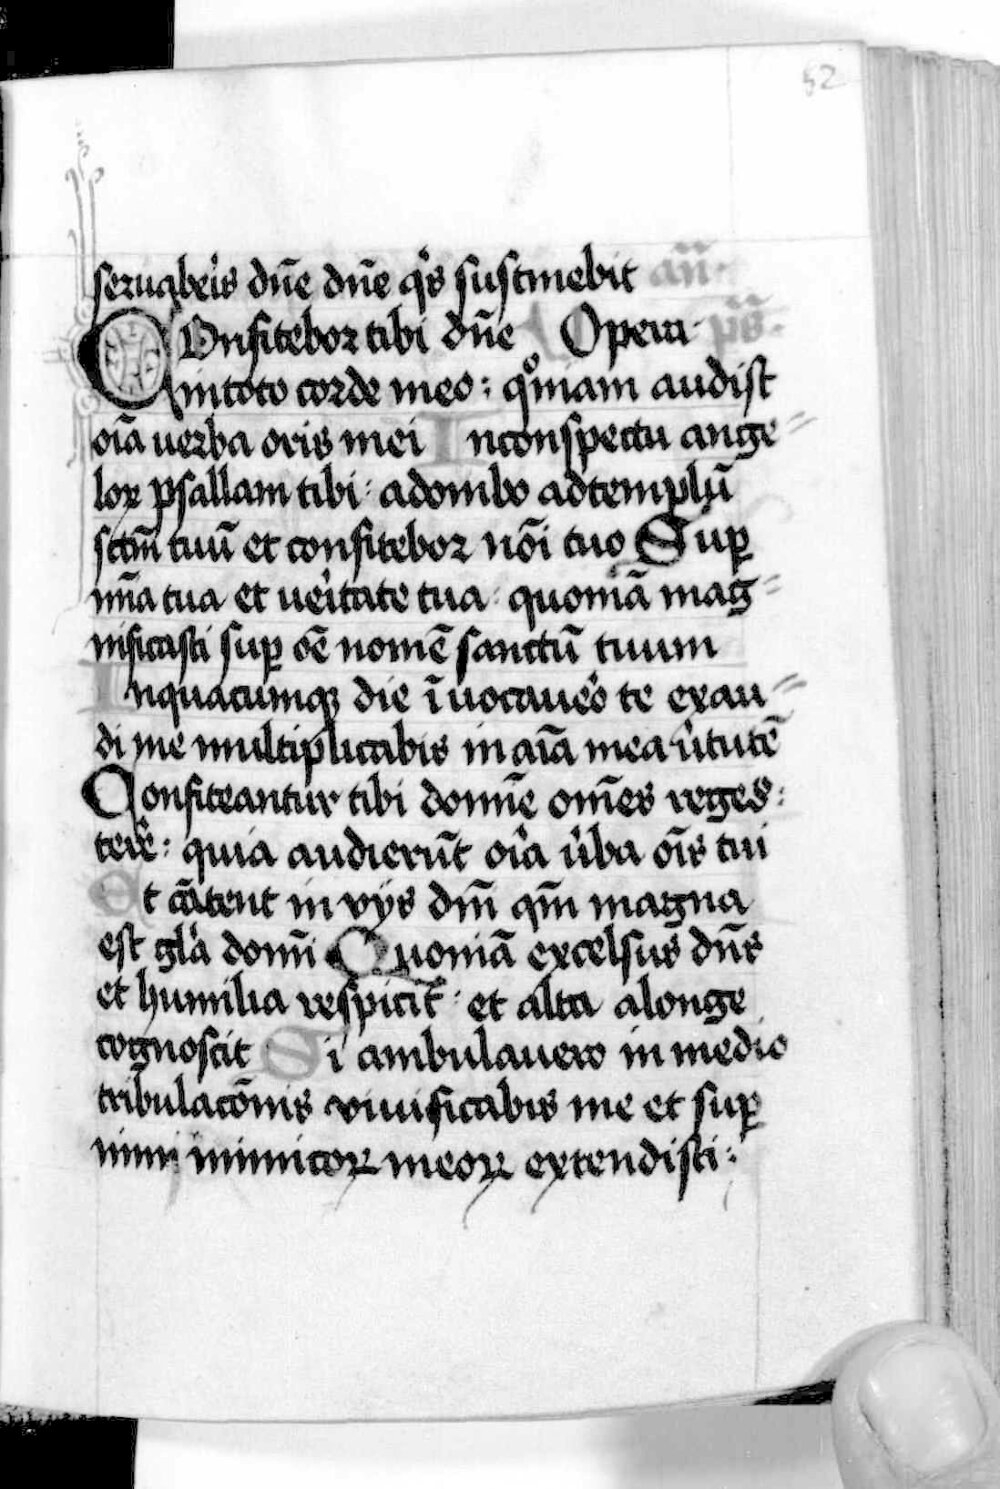 52
seruabeis dn̄e dn̄e q̇s sustinebit an̄.
Confitebor tibi dn̄e Opera. ps̄.
in toto corde meo: qͦniam audist
oīa uerba oris mei In conspectu ange=
loꝝ psallam tibi: adorabo ad templū
sctm̄ tuū et confitebor nōi tuo Suꝑ
mīa tua et ueítate tua: quoniā mag=
nificasti suꝑ oē nomē sanctū tuum
In quacumqꝫ die īuocaueo̓ te exau=
di me multiplicabis in aīa mea u̓tutē
Confiteantur tibi domīe om̄es reges:
tere̓: quia audierūt oīa u̓ba oīs tui
Et cātent in vijs dm̄ qm̄ magna
est gl̓a domī Quoniā excelsus dn̄s
et humilia respicit̄: et alta a longe
cognoscit Si ambulauero in medio
tribulacōnis viuificabis me et suꝑ
inimicoꝝ meoꝝ extendisti: